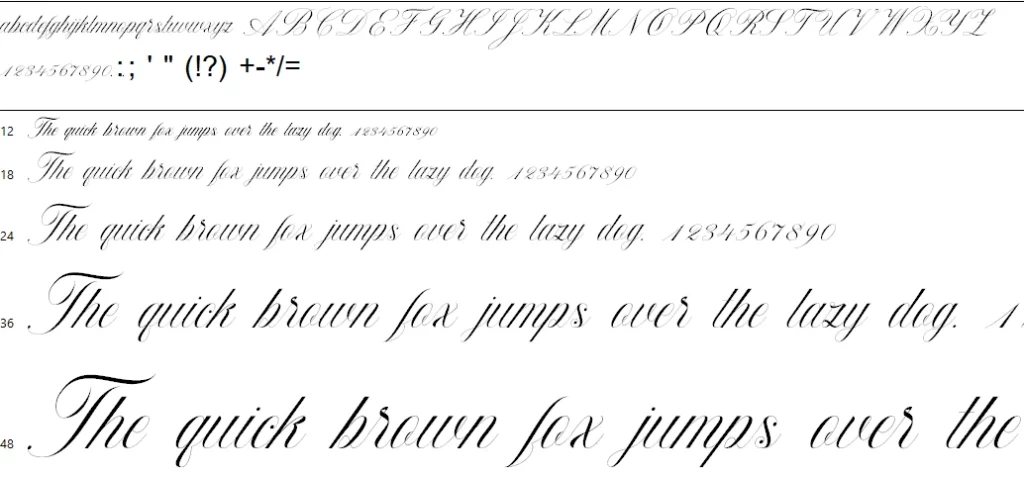 abcdefghijklmnopqrstuvwxyz ABCDEFGHIJKLMNOPQRSTUVWXYZ
1234567890.:; ' " (!?) +-*/=
12 The quick brown fox jumps over the lazy dog. 1234567890
18 The quick brown fox jumps over the lazy dog. 1234567890
24 The quick brown fox jumps over the lazy dog. 1234567890
36 The quick brown fox jumps over the lazy dog. 1
48 The quick brown fox jumps over the